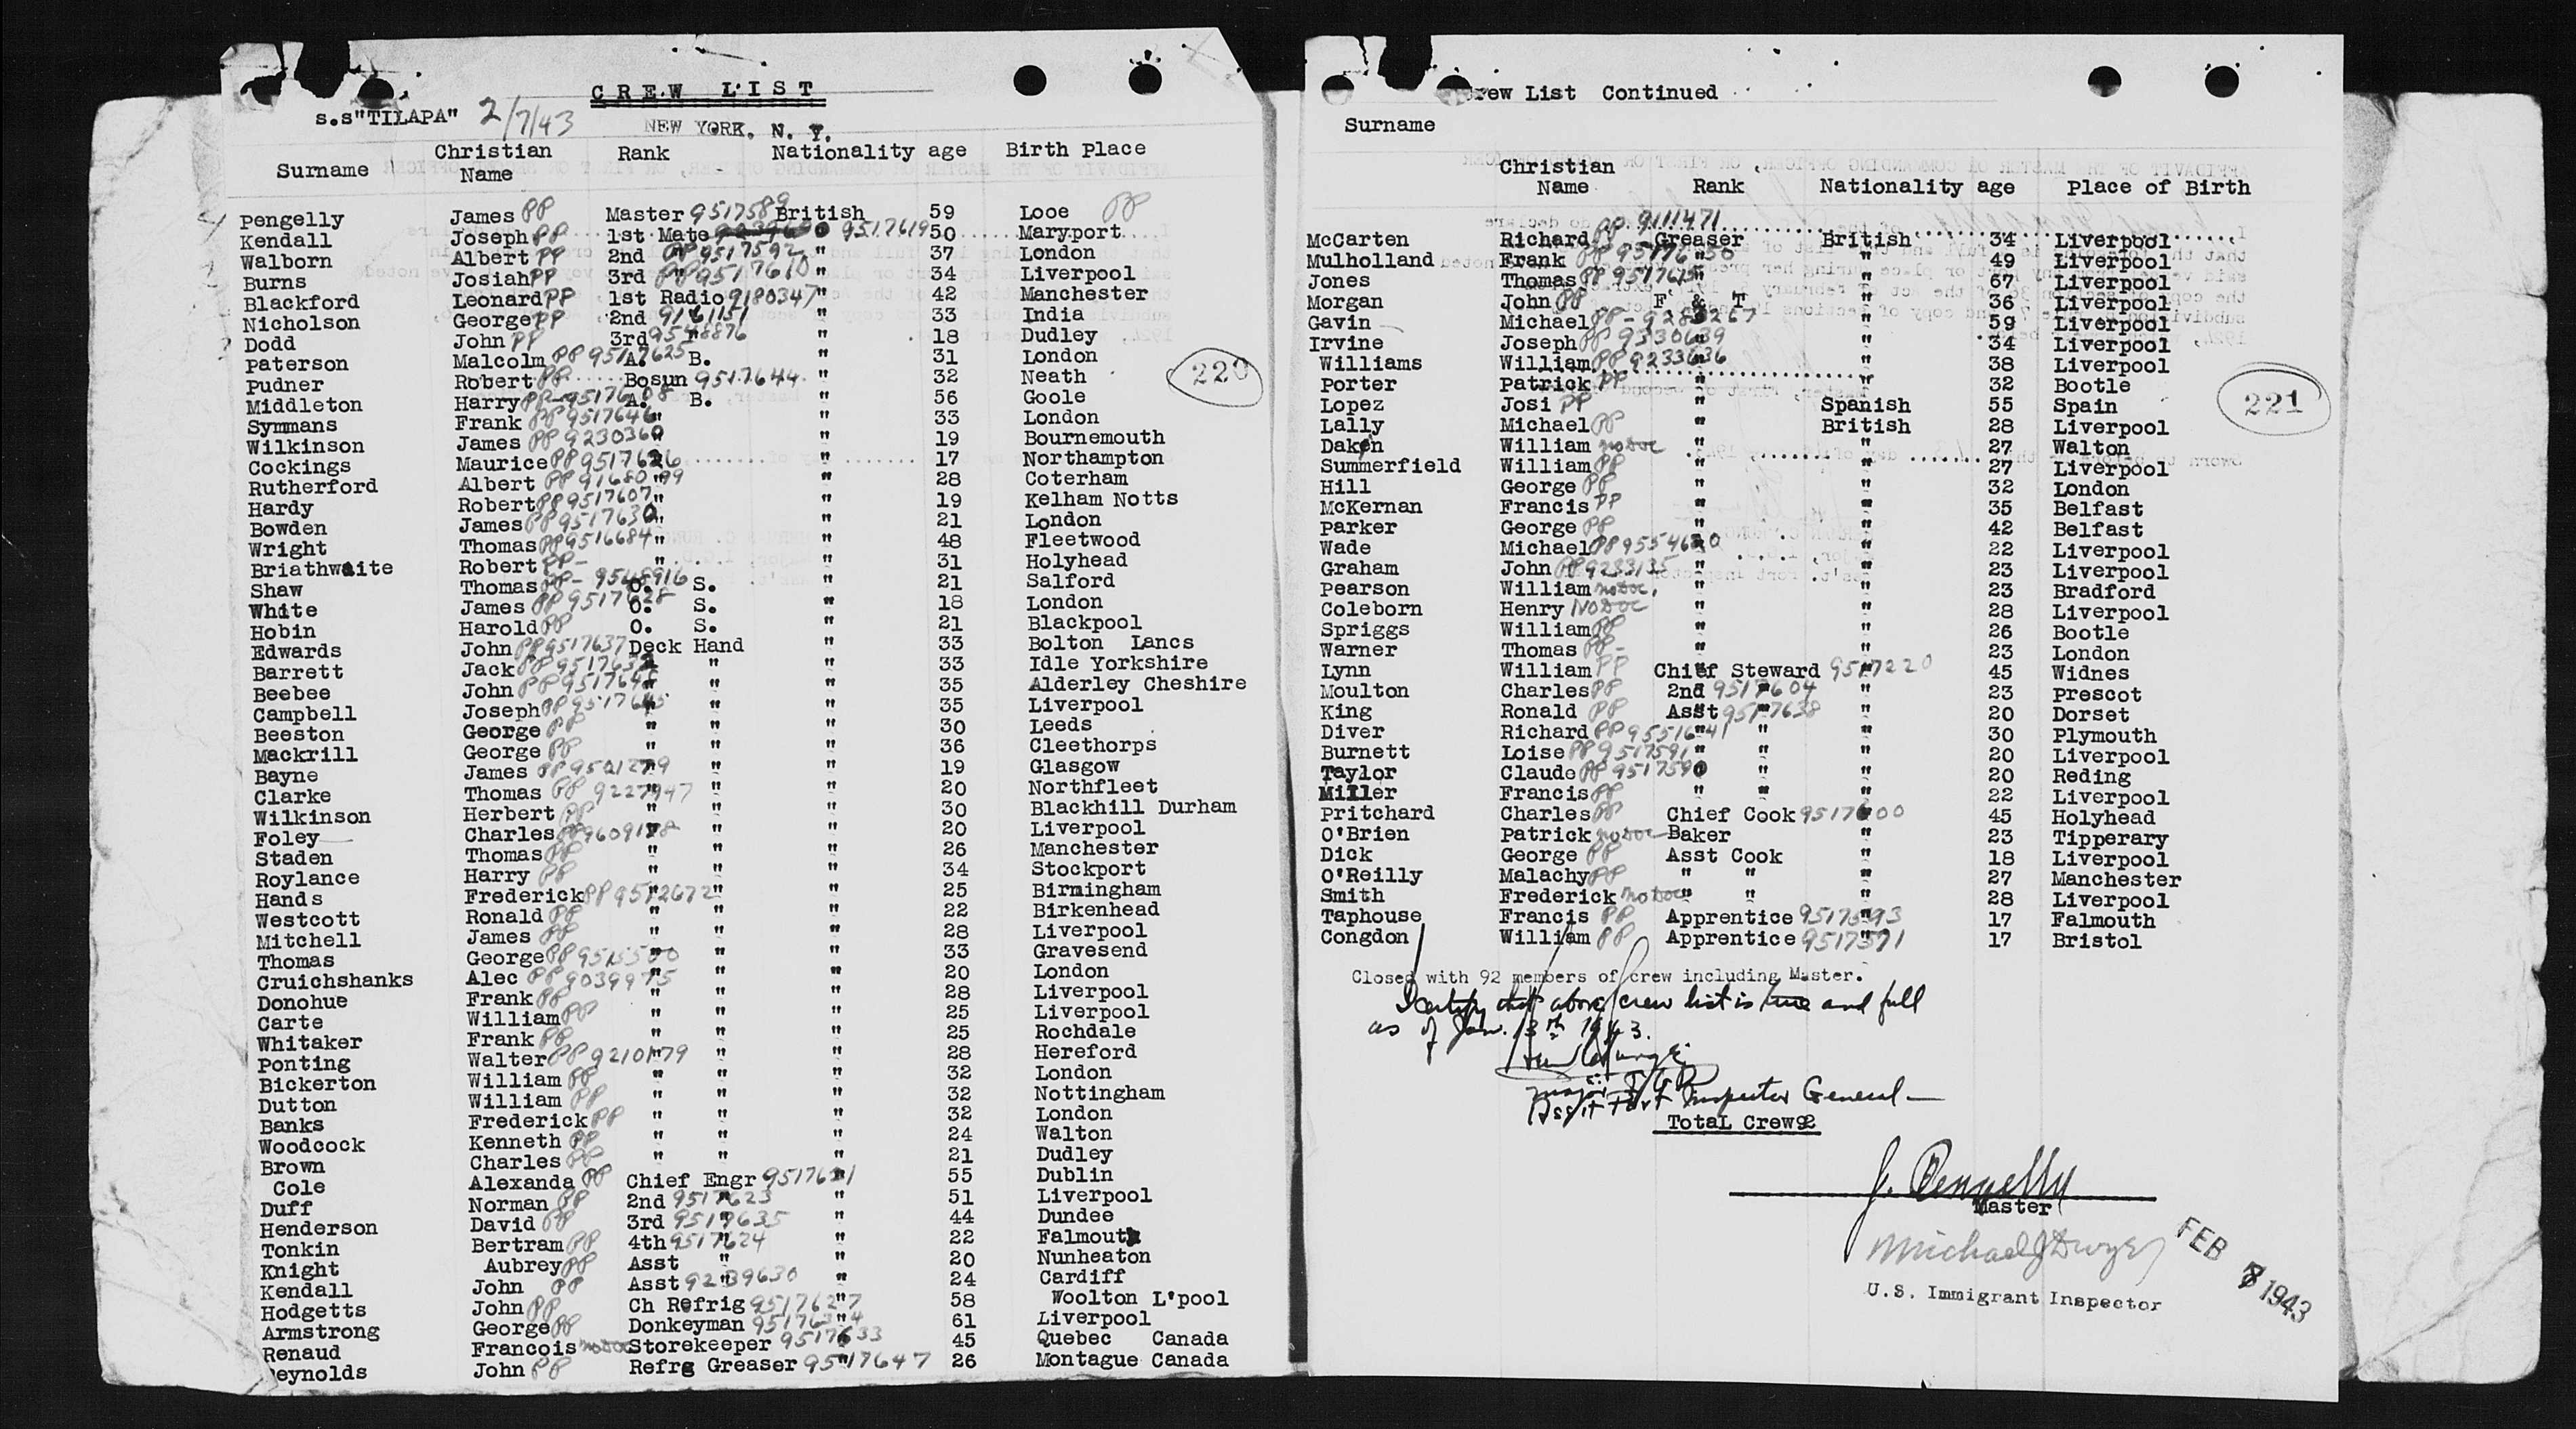 CREW LIST
s.s"TILAPA" 2/7/43
NEW YORK, N. Y.
Surname Christian Name Rank Nationality age Birth Place
Pengelly James PP Master 9517589 British 59 Looe PP
Kendall Joseph PP 1st Mate 9239630 9517619 50 Maryport
Walborn Albert PP 2nd " PP 9517592 " 37 London
Burns Josiah PP 3rd " PP 9517610 " 34 Liverpool
Blackford Leonard PP 1st Radio 9180347 " 42 Manchester
Nicholson George PP 2nd " 9161151 33 India
Dodd John PP 3rd " 9548876 " 18 Dudley
Paterson Malcolm PP 9517625 A. B. " 31 London
Pudner Robert PP Bosun 9517644 " 32 Neath
Middleton Harry PP-9517608 A. B. " 56 Goole
Symmans Frank PP 9517646 " " 33 London
Wilkinson James PP 9230360 " " 19 Bournemouth
Cockings Maurice PP 9517626 " " 17 Northampton
Rutherford Albert PP 9168099 " " 28 Coterham
Hardy Robert PP 9517607 " " 19 Kelham Notts
Bowden James PP 9517630 " " 21 London
Wright Thomas PP 9516684 " " 48 Fleetwood
Briathwaite Robert PP- " " 31 Holyhead
Shaw Thomas PP- 9548916 O. S. " 21 Salford
White James PP 9517628 O. S. " 18 London
Hobin Harold PP O. S. " 21 Blackpool
Edwards John PP 9517637 Deck Hand " 33 Bolton Lancs
Barrett Jack PP 9517632 " " " 33 Idle Yorkshire
Beebee John PP 9517648 " " " 35 Alderley Cheshire
Campbell Joseph PP 9517645 " " " 35 Liverpool
Beeston George PP " " " 30 Leeds
Mackrill George PP " " " 36 Cleethorps
Bayne James PP 9501279 " " " 19 Glasgow
Clarke Thomas PP 9227947 " " " 20 Northfleet
Wilkinson Herbert PP " " " 30 Blackhill Durham
Foley Charles PP 9609188 " " " 20 Liverpool
Staden Thomas PP " " " 26 Manchester
Roylance Harry PP " " " 34 Stockport
Hands Frederick PP 9512672 " " " 25 Birmingham
Westcott Ronald PP " " " 22 Birkenhead
Mitchell James PP " " " 28 Liverpool
Thomas George PP 9515500 " " " 33 Gravesend
Cruichshanks Alec PP 9039975 " " " 20 London
Donohue Frank PP " " " 28 Liverpool
Carte William PP " " " 25 Liverpool
Whitaker Frank PP " " " 25 Rochdale
Ponting Walter PP 9210179 " " " 28 Hereford
Bickerton William PP " " " 32 London
Dutton William PP " " " 32 Nottingham
Banks Frederick PP " " " 32 London
Woodcock Kenneth PP " " " 24 Walton
Brown Charles PP " " " 21 Dudley
Cole Alexanda PP Chief Engr 9517621 " 55 Dublin
Duff Norman PP 2nd " 9517623 " 51 Liverpool
Henderson David PP 3rd " 9517635 " 44 Dundee
Tonkin Bertram PP 4th " 9517624 " 22 Falmouth
Knight Aubrey PP Asst " " 20 Nunheaton
Kendall John PP Asst " 9239630 " 24 Cardiff
Hodgetts John PP Ch Refrig 9517627 " 58 Woolton L'pool
Armstrong George PP Donkeyman 9517634 " 61 Liverpool
Renaud Francois no doc Storekeeper 9517633 " 45 Quebec Canada
eynolds John PP Refrg Greaser 9517647 " 26 Montague Canada
220
rew List Continued
Surname Christian Name Rank Nationality age Place of Birth
McCarten Richard PP 9111471 Greaser British 34 Liverpool
Mulholland Frank PP 9517650 " " 49 Liverpool
Jones Thomas PP 9517615 " " 67 Liverpool
Morgan John PP F & T " 36 Liverpool
Gavin Michael PP-9283267 " " 59 Liverpool
Irvine Joseph PP 9330639 " " 34 Liverpool
Williams William PP 9233636 " " 38 Liverpool
Porter Patrick PP " " 32 Bootle
Lopez Josi PP " Spanish 55 Spain
Lally Michael PP " British 28 Liverpool
Daken William no doc " " 27 Walton
Summerfield William PP " " 27 Liverpool
Hill George PP " " 32 London
McKernan Francis PP " " 35 Belfast
Parker George PP " " 42 Belfast
Wade Michael PP 9554620 " " 22 Liverpool
Graham John PP 9233135 " " 23 Liverpool
Pearson William no doc. " " 23 Bradford
Coleborn Henry No Doc " " 28 Liverpool
Spriggs William PP " " 26 Bootle
Warner Thomas PP- " " 23 London
Lynn William PP Chief Steward 9517220 " 45 Widnes
Moulton Charles PP 2nd " 9517604 " 23 Prescot
King Ronald PP Asst " 9517638 " 20 Dorset
Diver Richard PP 9551641 " " " 30 Plymouth
Burnett Loise PP 9517591 " " " 20 Liverpool
Taylor Claude PP 9517590 " " " 20 Reding
Miller Francis PP " " " 22 Liverpool
Pritchard Charles PP Chief Cook 9517600 " 45 Holyhead
O'Brien Patrick no doc Baker " 23 Tipperary
Dick George PP Asst Cook " 18 Liverpool
O'Reilly Malachy PP " " " 27 Manchester
Smith Frederick no doc " " " 28 Liverpool
Taphouse Francis PP Apprentice 9517593 " 17 Falmouth
Congdon William PP Apprentice 9517571 " 17 Bristol
221
Closed with 92 members of crew including Master.
I certify that above crew list is true and full
as of Jan. 13th 1943.
Major I G D
Ass't Port Inspector General
Total Crew 92
J. Pengelly
Master
Michael J Dwyer
U.S. Immigrant Inspector
FEB 7 1943